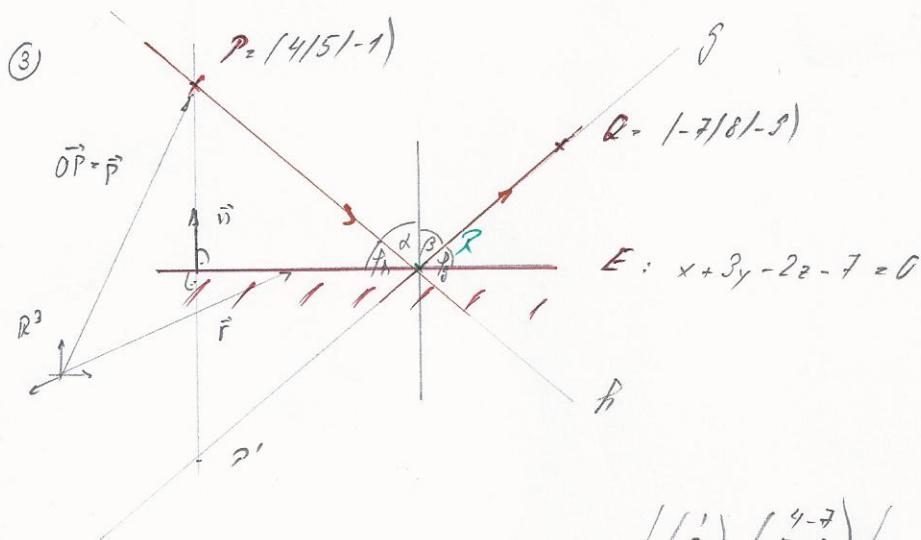 ③
P = (4/5/-1)
g
Q = (-7/8/-9)
O⃗P = p⃗
n⃗
α β R
φh φg
E : x + 3y - 2z - 7 = 0
R³
r⃗
h
P'
1 4-7